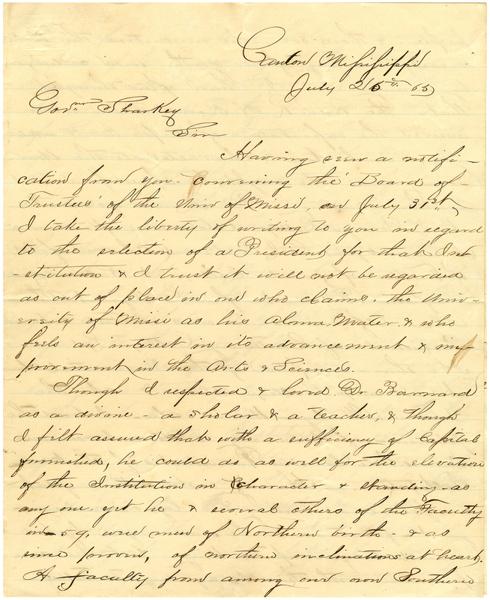 Canton Mississippi
July 26th 65
Govnr Sharkey
Sir
Having seen a notifi-
cation from you convening the Board of
Trustees of the Univ of Missi on July 31st,
I take the liberty of writing to you in regard
to the selection of a President for that Inst
-stitution & I trust it will not be regarded
as out of place in one who claims, the Univ-
ersity of Missi as his Alma Mater & who
feels an interest in its advancement & im-
provement in the Arts & Sciences.
Though I respected & loved Dr Barnard
as a divine - a scholar & a teacher, & though
I felt assured that with a sufficiency of Capital
furnished, he could do as well for the elevation
of the Institution in Character & standing as
any one yet he & several others of the Faculty
in 59, were men of Northern birth - & as
since proven, of northern inclinations at heart.
A faculty from among our own Southern